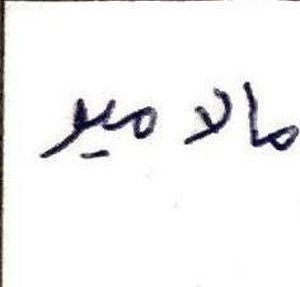 مالا میر